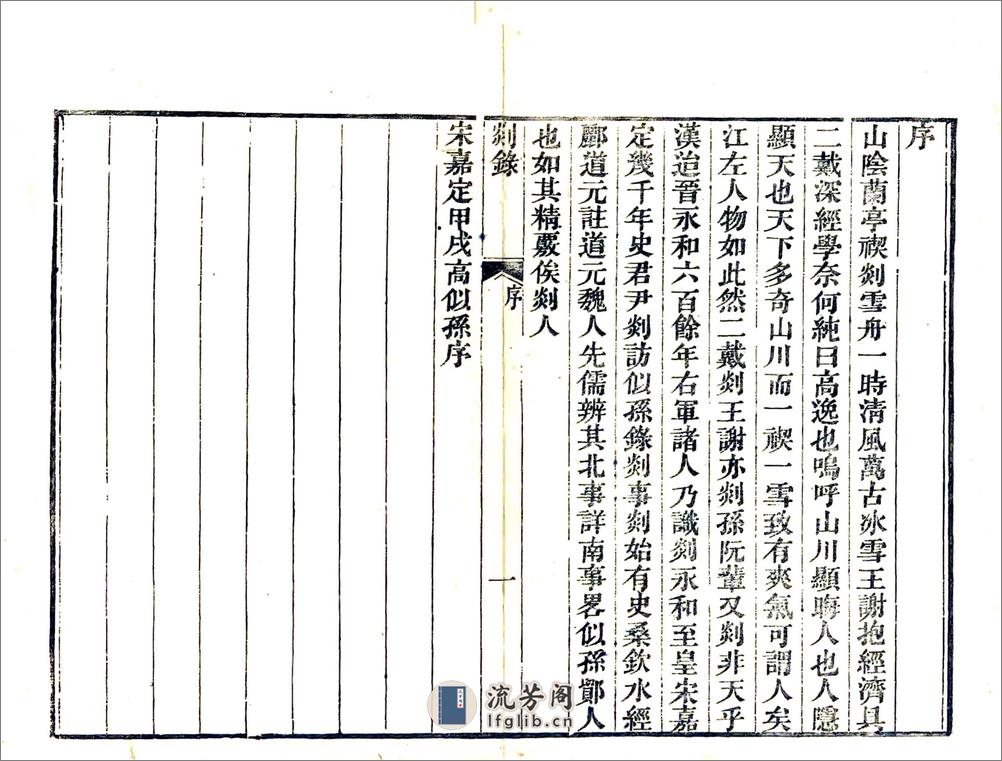 序
山陰蘭亭禊剡雪舟一時清風萬古冰雪王謝抱經濟具
二戴深經學奈何純曰高逸也嗚呼山川顯晦人也人隱
顯天也天下多奇山川而一禊一雪致有爽氣可謂人矣
江左人物如此然二戴剡王謝亦剡孫阮輩又剡非天乎
漢迨晉永和六百餘年右軍諸人乃識剡永和至皇宋嘉
定幾千年史君尹剡訪似孫錄剡事剡始有史桑欽水經
酈道元註道元魏人先儒辨其北事詳南事畧似孫鄞人
也如其精覈俟剡人
剡錄 序 一
宋嘉定甲戌高似孫序
流芳阁
lfglib.cn